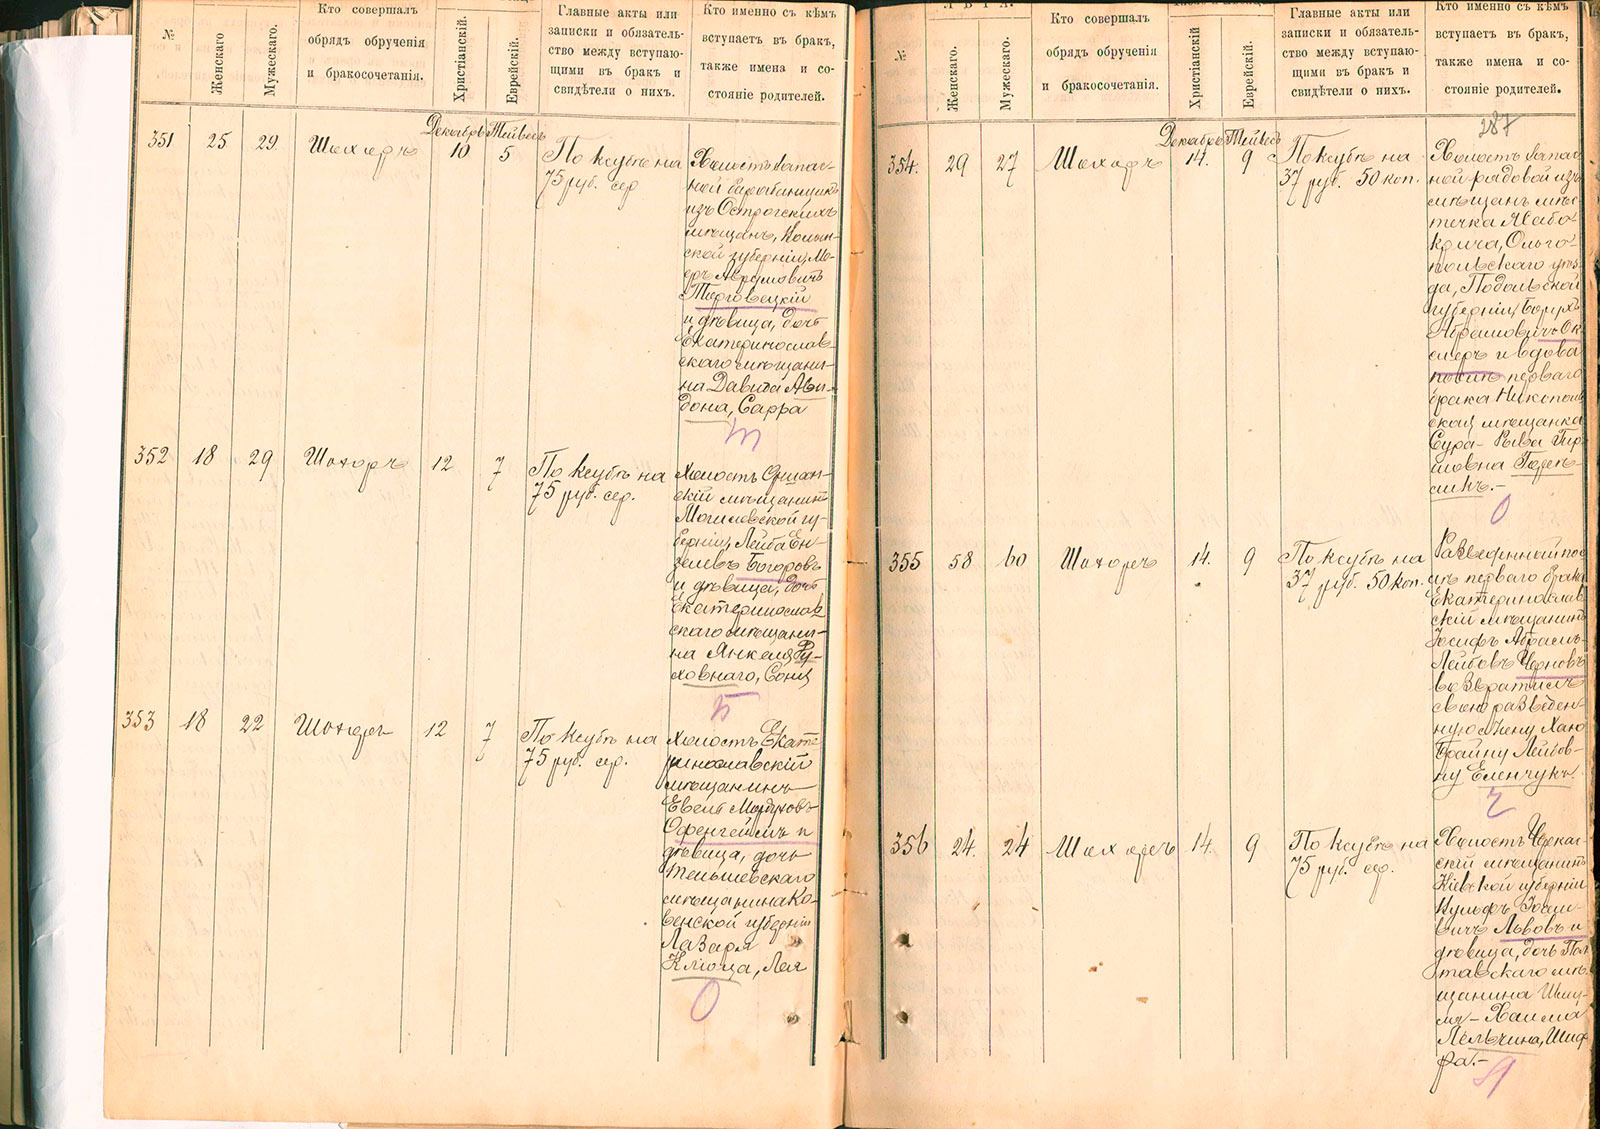 №
Женскаго
Мужескаго.
Кто совершалъ
обрядъ обрученія
и бракосочетанія.
Христіанскій.
Еврейскій.
Главные акты или
записки и обязатель-
ство между вступаю-
щими въ бракъ и
свидѣтели о нихъ.
Кто именно съ кѣмъ
вступаетъ въ бракъ,
также имена и со-
стояніе родителей.
351 25 29. Шохоръ
Декабрь Тейвесъ
10 5
По ксубѣ на
75 руб. сер.
Холостъ запас-
ной барабанщикъ
изъ Острогскихъ
мѣщанъ, Волын-
ской губерніи, Мо-
Аврумовичъ
Торговецкій
и дѣвица, дочь
Екатеринослав-
скаго мѣщани-
на Давида Ави-
дона, Сарра
т
352 18 29 Шохоръ 12 7
По ксубѣ на
75 руб. сер.
Холостъ Оршан-
скій мѣщанинъ
Могилевской гу-
берніи, Лейба Ен-
зелевъ Богоровъ
и дѣвица, дочь
Екатеринослав
скаго мѣщани-
на Янкеля Ру-
ховнаго, Соня
Б
353 18 22 Шохоръ 12 7
По ксубѣ на
75 руб. сер.
Холостъ Екате-
ринославскій
мѣщанинъ
Евель Мордуховъ
Офенгеймъ и
дѣвица, дочь
Тельшевскаго
мѣщанина Ко-
венской губерніи
Лазаря
Клюца, Лея
О
№
Женскаго.
Мужескаго.
Кто совершалъ
обрядъ обрученія
и бракосочетанія.
Христіанскій
Еврейскій.
Главные акты или
записки и обязатель-
ство между вступаю-
щими въ бракъ и
свидѣтели о нихъ.
Кто именно съ кѣмъ
вступаетъ въ бракъ,
также имена и со-
стояніе родителей.
287
354. 29 27 Шохоръ
Декабрь Тейвесъ
14. 9
По ксубѣ на
37 руб. 50 коп.
Холостъ запас
ной рядовой изъ
мѣщанъ мѣс
течка Жабо
крича, Ольго-
польскаго уѣз-
да, Подольской
губерніи, Борухъ
Абрамовичъ Ок
смеръ и вдова
послѣ перваго
брака Никополь
ская мѣщанка
Сура-Рыва Гир
шовна
О
355 58 60 Шохоръ 14. 9
По ксубѣ на
37 руб. 50 коп.
Разведенный пос
лѣ перваго брака
Екатеринослав
скій мѣщанинъ
Іосифъ Абрамъ-
Лейбовъ Черновъ
возвратилъ
свою разведен-
ную жену Хаю
Брайну Лейбов-
ну Еленчукъ.
Ч
356 24. 24 Шохоръ 14. 9
По ксубѣ на
75 руб. сер.
Холостъ Черкас-
скій мѣщанинъ
Кіевской губерніи
Вульфъ
Львовъ и
дѣвица, дочь Пол
тавскаго мѣ
щанина Шму-
ля-Хаима
Лельчина, Шиф
ра.-
Л